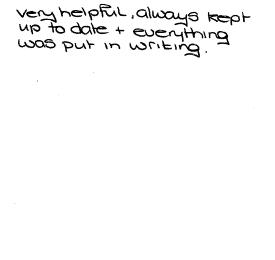 very helpful, always kept
up to date + everything
was put in writing.